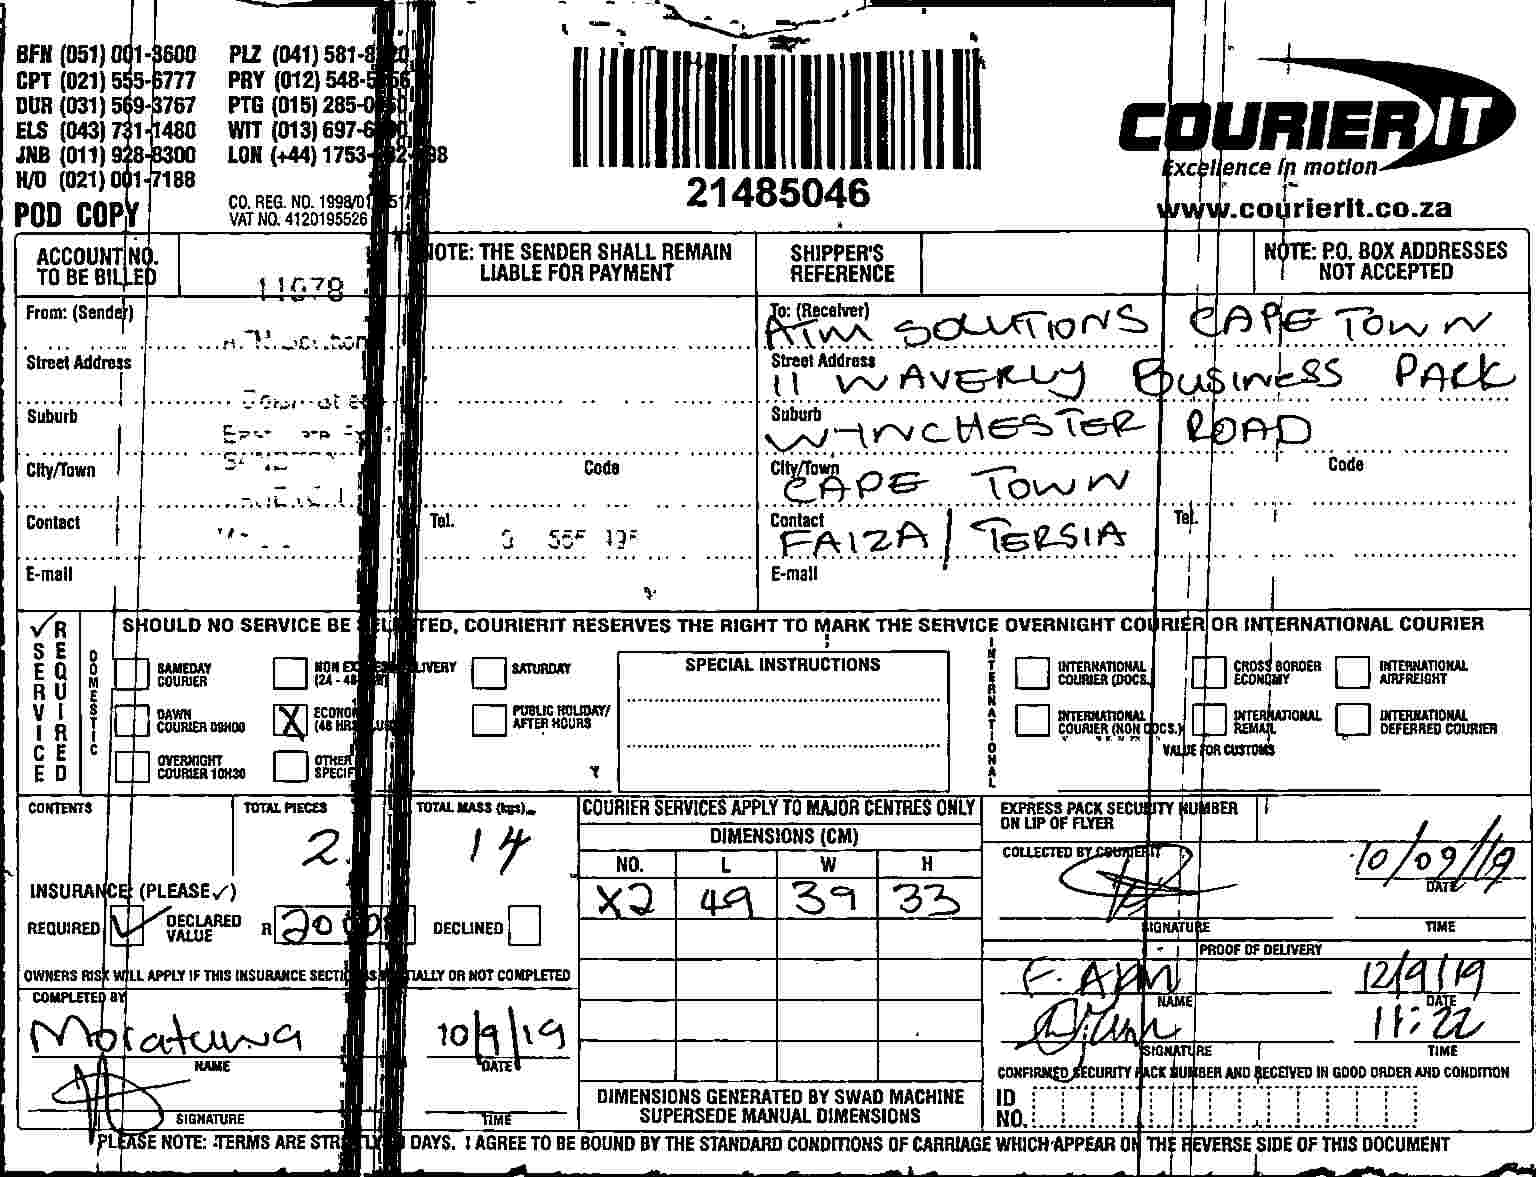 BFN (051) 001-3600 PLZ (041) 581-8
CPT (021) 555-6777 PRY (012) 548-5
DUR (031) 569-3767 PTG (015) 285-0
ELS (043) 731-1480 WIT (013) 697-6
JNB (011) 928-8300 LON (+44) 1753-
H/O (021) 001-7188
POD COPY
CO. REG. NO. 1998/0
VAT NO. 4120195526
21485046
COURIER IT
Excellence in motion
www.courierit.co.za
ACCOUNT NO.
TO BE BILLED
11078
NOTE: THE SENDER SHALL REMAIN
LIABLE FOR PAYMENT
SHIPPER'S
REFERENCE
NOTE: P.O. BOX ADDRESSES
NOT ACCEPTED
From: (Sender)
Street Address
Suburb
City/Town Code
Contact Tel.
E-mail
To: (Receiver)
ATM SOLUTIONS CAPE TOWN
Street Address
11 WAVERLY BUSINESS PARK
Suburb
WINCHESTER ROAD
City/Town Code
CAPE TOWN
Contact Tel.
FAIZA / TERSIA
E-mail
✓ SERVICE REQUIRED
SHOULD NO SERVICE BE SELECTED, COURIERIT RESERVES THE RIGHT TO MARK THE SERVICE OVERNIGHT COURIER OR INTERNATIONAL COURIER
DOMESTIC
SAMEDAY
COURIER
NON EXPRESS DELIVERY
(24 - 48
SATURDAY
DAWN
COURIER 09H00
X ECONOMY
(48 HRS
PUBLIC HOLIDAY/
AFTER HOURS
OVERNIGHT
COURIER 10H30
OTHER
SPECIFY
SPECIAL INSTRUCTIONS
INTERNATIONAL
INTERNATIONAL
COURIER (DOCS.)
CROSS BORDER
ECONOMY
INTERNATIONAL
AIRFREIGHT
INTERNATIONAL
COURIER (NON DOCS.)
INTERNATIONAL
REMAIL
INTERNATIONAL
DEFERRED COURIER
VALUE FOR CUSTOMS
CONTENTS
TOTAL PIECES
2
TOTAL MASS (kgs)
14
INSURANCE: (PLEASE ✓)
REQUIRED ✓ DECLARED
VALUE R 20 000 DECLINED
OWNERS RISK WILL APPLY IF THIS INSURANCE SECTION IS PARTIALLY OR NOT COMPLETED
COMPLETED BY
Moratuwa 10/9/19
NAME DATE
SIGNATURE TIME
COURIER SERVICES APPLY TO MAJOR CENTRES ONLY
DIMENSIONS (CM)
NO. L W H
X2 49 39 33
DIMENSIONS GENERATED BY SWAD MACHINE
SUPERSEDE MANUAL DIMENSIONS
EXPRESS PACK SECURITY NUMBER
ON LIP OF FLYER
COLLECTED BY COURIERIT
10/09/19
DATE
SIGNATURE TIME
PROOF OF DELIVERY
F. 12/9/19
NAME DATE
11:22
SIGNATURE TIME
CONFIRMED SECURITY PACK NUMBER AND RECEIVED IN GOOD ORDER AND CONDITION
ID
NO.
PLEASE NOTE: TERMS ARE STRICTLY DAYS. I AGREE TO BE BOUND BY THE STANDARD CONDITIONS OF CARRIAGE WHICH APPEAR ON THE REVERSE SIDE OF THIS DOCUMENT